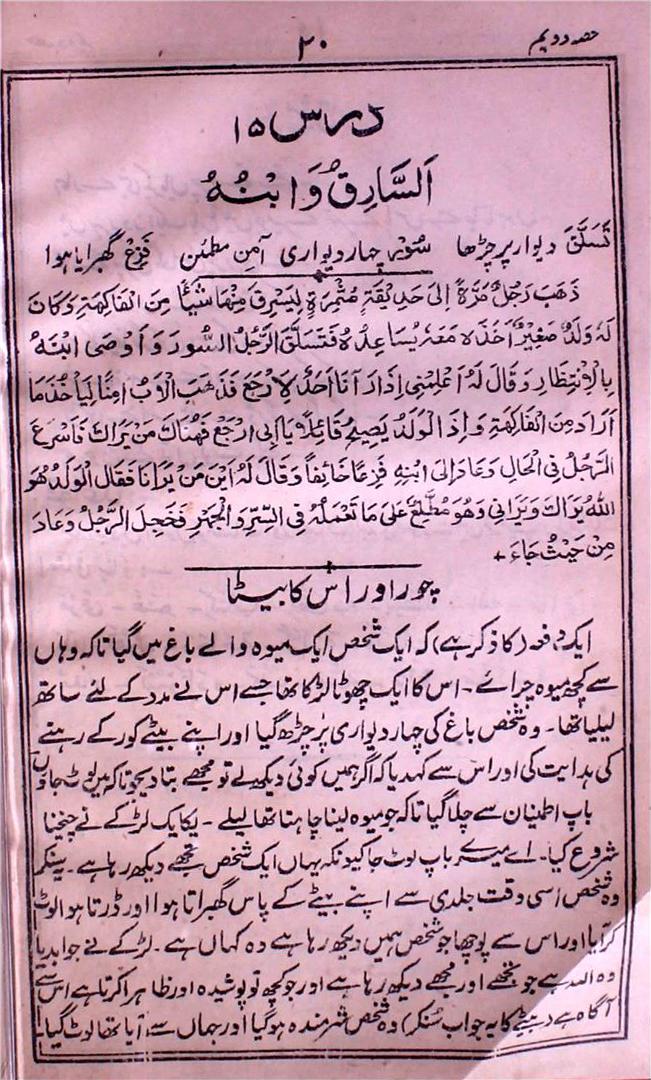 ۲۰ حصہ دویم
درس ۱۵
اَلسَّارِقُ وَابْنُهُ
تَسَلَّقَ دیوار پر چڑھا سُوْر چہار دیواری آمِن مطمئن فَزِع گھبرایا ہوا
ذَهَبَ رَجُلٌ مَرَّةً اِلٰى حَدِيْقَةٍ مُثْمِرَةٍ لِيَسْرِقَ مِنْهَا شَيْأً مِنَ الْفَاكِهَةِ وَكَانَ
لَهُ وَلَدٌ صَغِيْرٌ اَخَذَهٗ مَعَهٗ يُسَاعِدُهٗ فَتَسَلَّقَ الرَّجُلُ السُّوْرَ وَاَوْصَى ابْنَهُ
بِالْاِنْتِظَارِ وَقَالَ لَهُ اَعْلِمْنِىْ اِذَا رَآنَا اَحَدٌ لِاَرْجَعَ فَذَهَبَ الْاَبُ اٰمِنًا لِيَأْخُذَ مَا
اَرَادَ مِنَ الْفَاكِهَةِ وَاِذَ الْوَلَدُ يَصِيْحُ قَائِلًا يَا اَبِى ارْجَعْ فَهُنَاكَ مَنْ يَرَاكَ فَاَسْرَعَ
الرَّجُلُ فِى الْحَالِ وَعَادَ اِلَى ابْنِهٖ فَزِعًا خَائِفاً وَقَالَ لَهُ اَيْنَ مَنْ يَرَانَا فَقَالَ الْوَلَدُ هُوَ
اللّٰهُ يَرَاكَ وَيَرَانِىْ وَهُوَ مُطَّلِعٌ عَلٰى مَا تَعْمَلُهُ فِى السِّرِّ وَالْجَهْرِ فَخَجِلَ الرَّجُلُ وَعَادَ
مِنْ حَيْثُ جَاءَ +
چور اور اس کا بیٹا
ایک دفعہ (کا ذکر ہے) کہ ایک شخص ایک میوہ والے باغ میں گیا تاکہ وہاں
سے کچھ میوہ چرائے۔ اس کا ایک چھوٹا لڑکا تھا جسے اس نے مدد کے لئے ساتھ
لیلیا تھا۔ وہ شخص باغ کی چہار دیواری پر چڑھ گیا اور اپنے بیٹے کو رکے رہنے
کی ہدایت کی اور اس سے کہدیا کہ اگر ہمیں کوئی دیکھ لے تو مجھے بتا دیجو تاکہ میں لوٹ جاؤں
باپ اطمینان سے چلا گیا تاکہ جو میوہ لینا چاہتا تھا لیلے۔ یکایک لڑکے نے چیخنا
شروع کیا۔ اے میرے باپ لوٹ جا کیونکہ یہاں ایک شخص تجھے دیکھ رہا ہے۔ یہ سنکر
وہ شخص اسی وقت جلدی سے اپنے بیٹے کے پاس گھبراتا ہوا اور ڈرتا ہوا لوٹ
کر آیا اور اس سے پوچھا جو شخص ہمیں دیکھ رہا ہے وہ کہاں ہے۔ لڑکے نے جواب دیا
وہ اللہ ہے جو تجھے اور مجھے دیکھ رہا ہے اور جو کچھ تو پوشیدہ اور ظاہر کرتا ہے اس سے
آگاہ ہے (بیٹے کا یہ جواب سنکر) وہ شخص شرمندہ ہو گیا اور جہاں سے آیا تھا لوٹ گیا۔